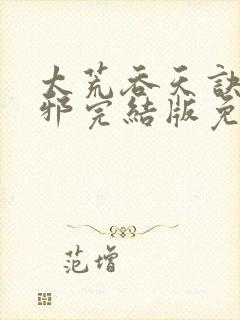 大荒吞天訣
邪完結版免
范增